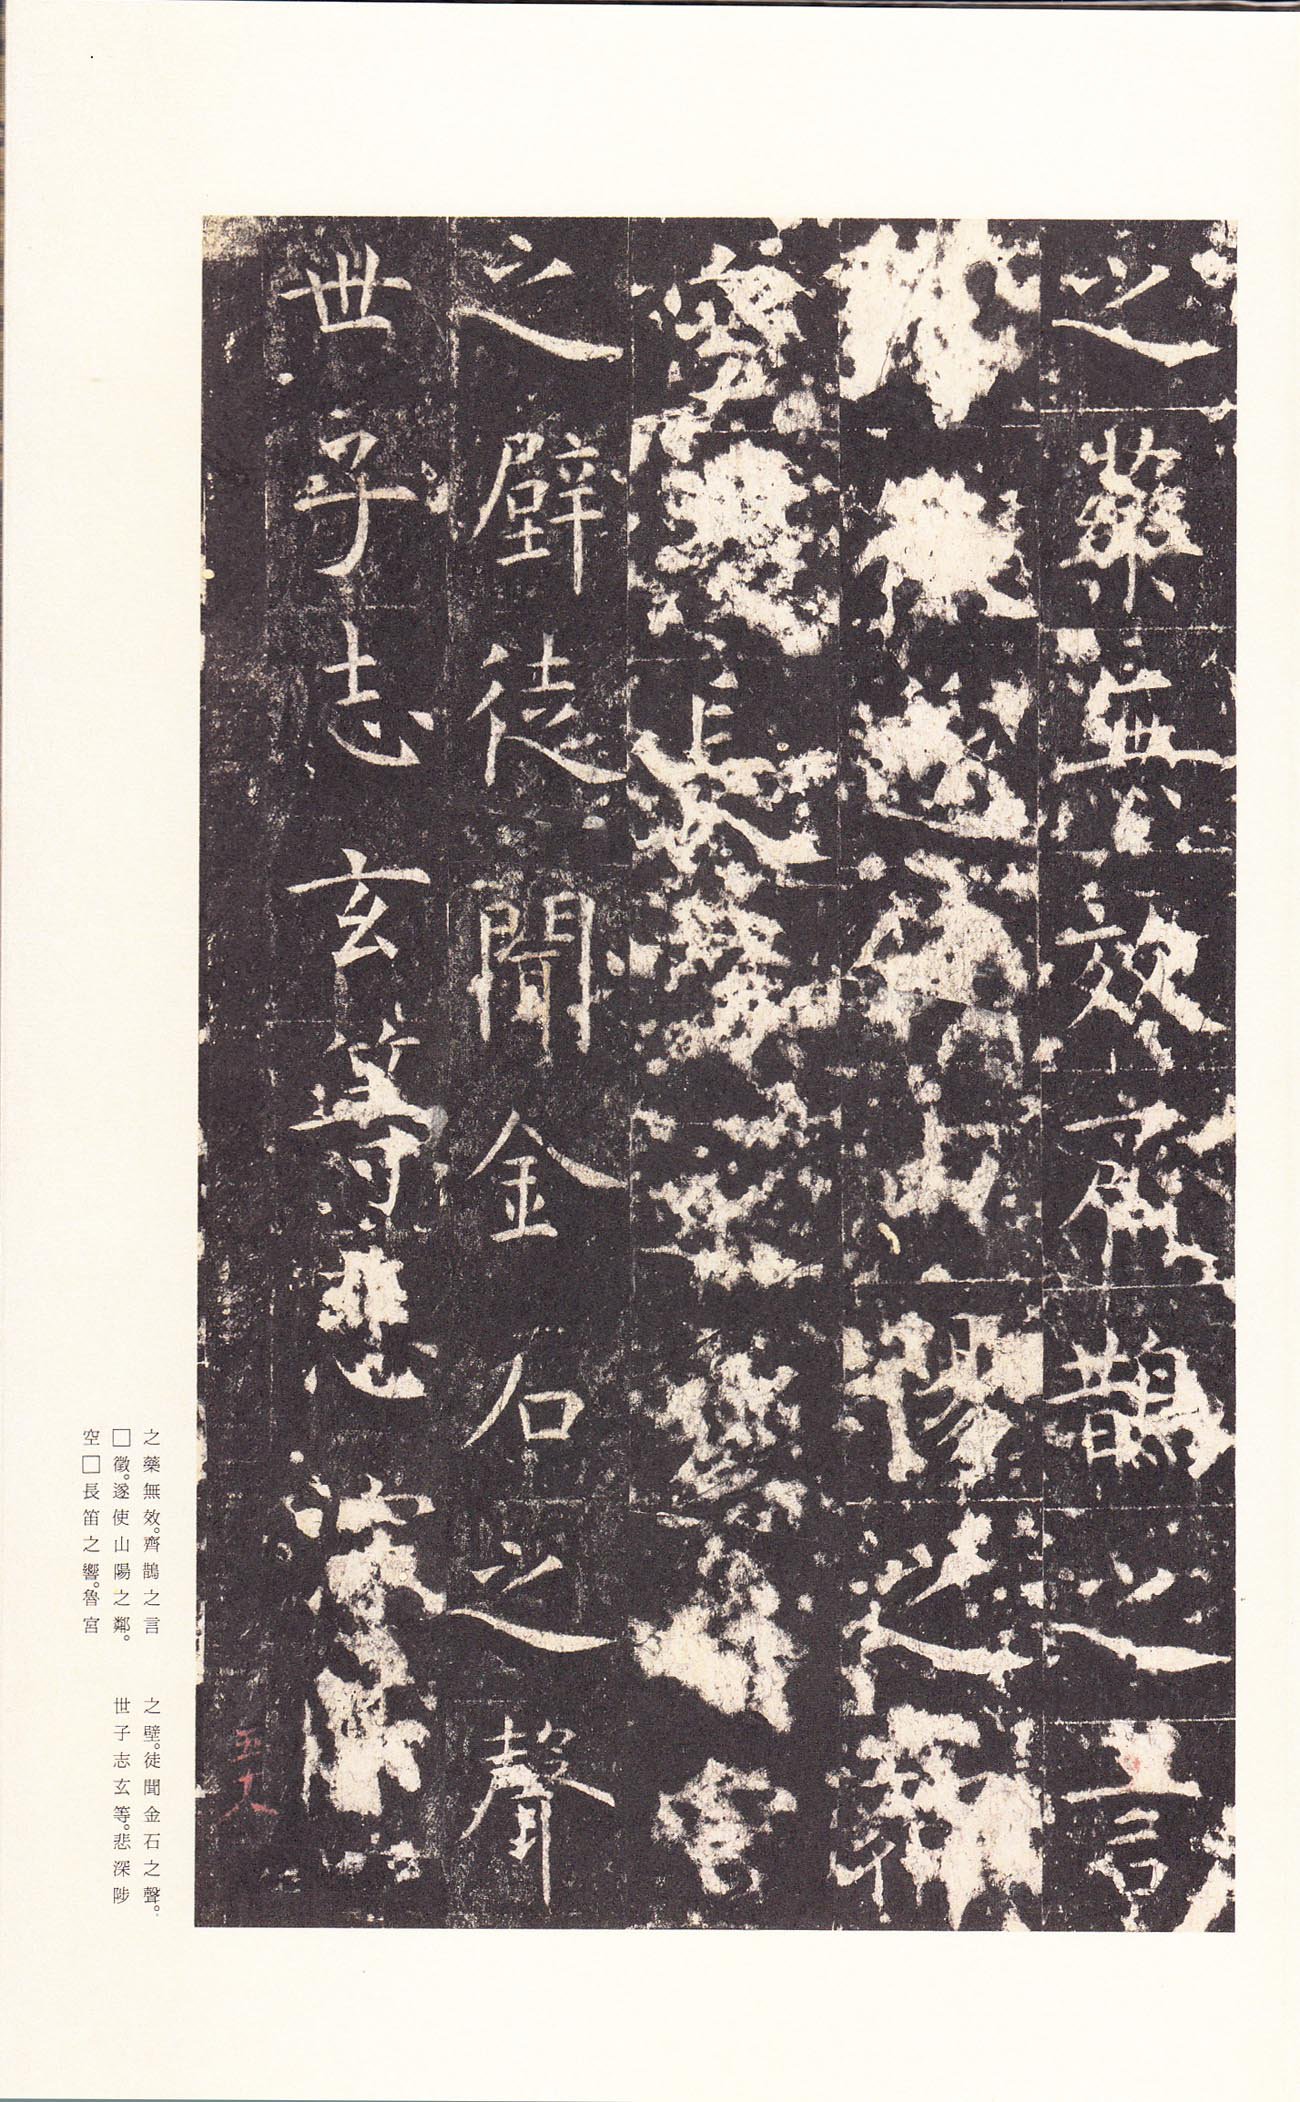 之藥無效齊鵲之言
徵遂使山陽之鄰
空長笛之響魯宮
之壁徒聞金石之聲
世子志玄等悲深陟
之藥無效。齊鵲之言
□徵。遂使山陽之鄰。
空□長笛之響。魯宮
之壁。徒聞金石之聲。
世子志玄等。悲深陟